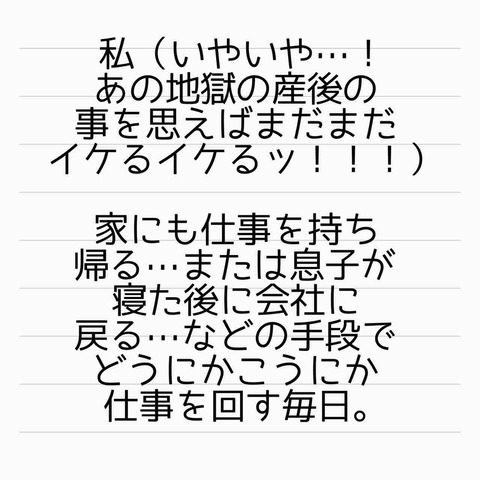 私（いやいや…！
あの地獄の産後の
事を思えばまだまだ
イケるイケるッ！！！）
家にも仕事を持ち
帰る…または息子が
寝た後に会社に
戻る…などの手段で
どうにかこうにか
仕事を回す毎日。